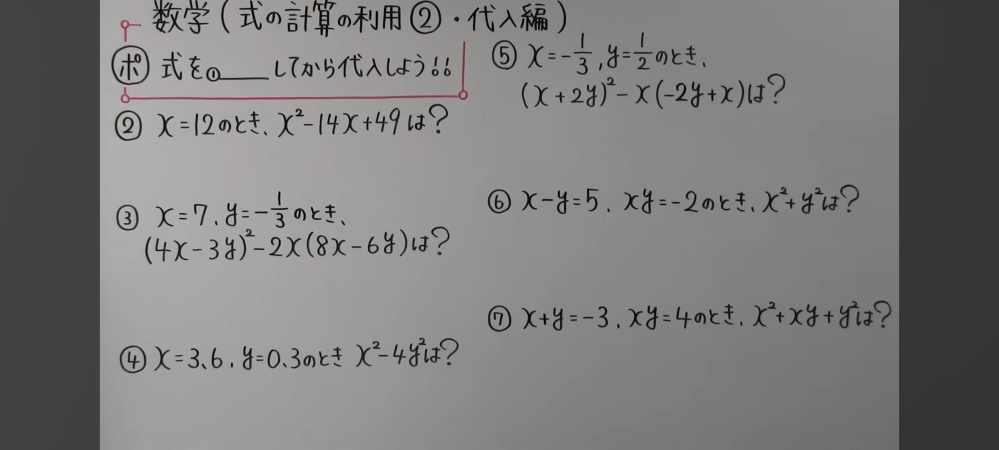 数学(式の計算の利用②・代入編)
ポ 式を①____してから代入しよう!!
② x=12のとき、x²-14x+49は?
③ x=7、y=-1/3のとき、
(4x-3y)²-2x(8x-6y)は?
④ x=3.6、y=0.3のとき x²-4y²は?
⑤ x=-1/3、y=1/2のとき、
(x+2y)²-x(-2y+x)は?
⑥ x-y=5、xy=-2のとき、x²+y²は?
⑦ x+y=-3、xy=4のとき、x²+xy+y²は?